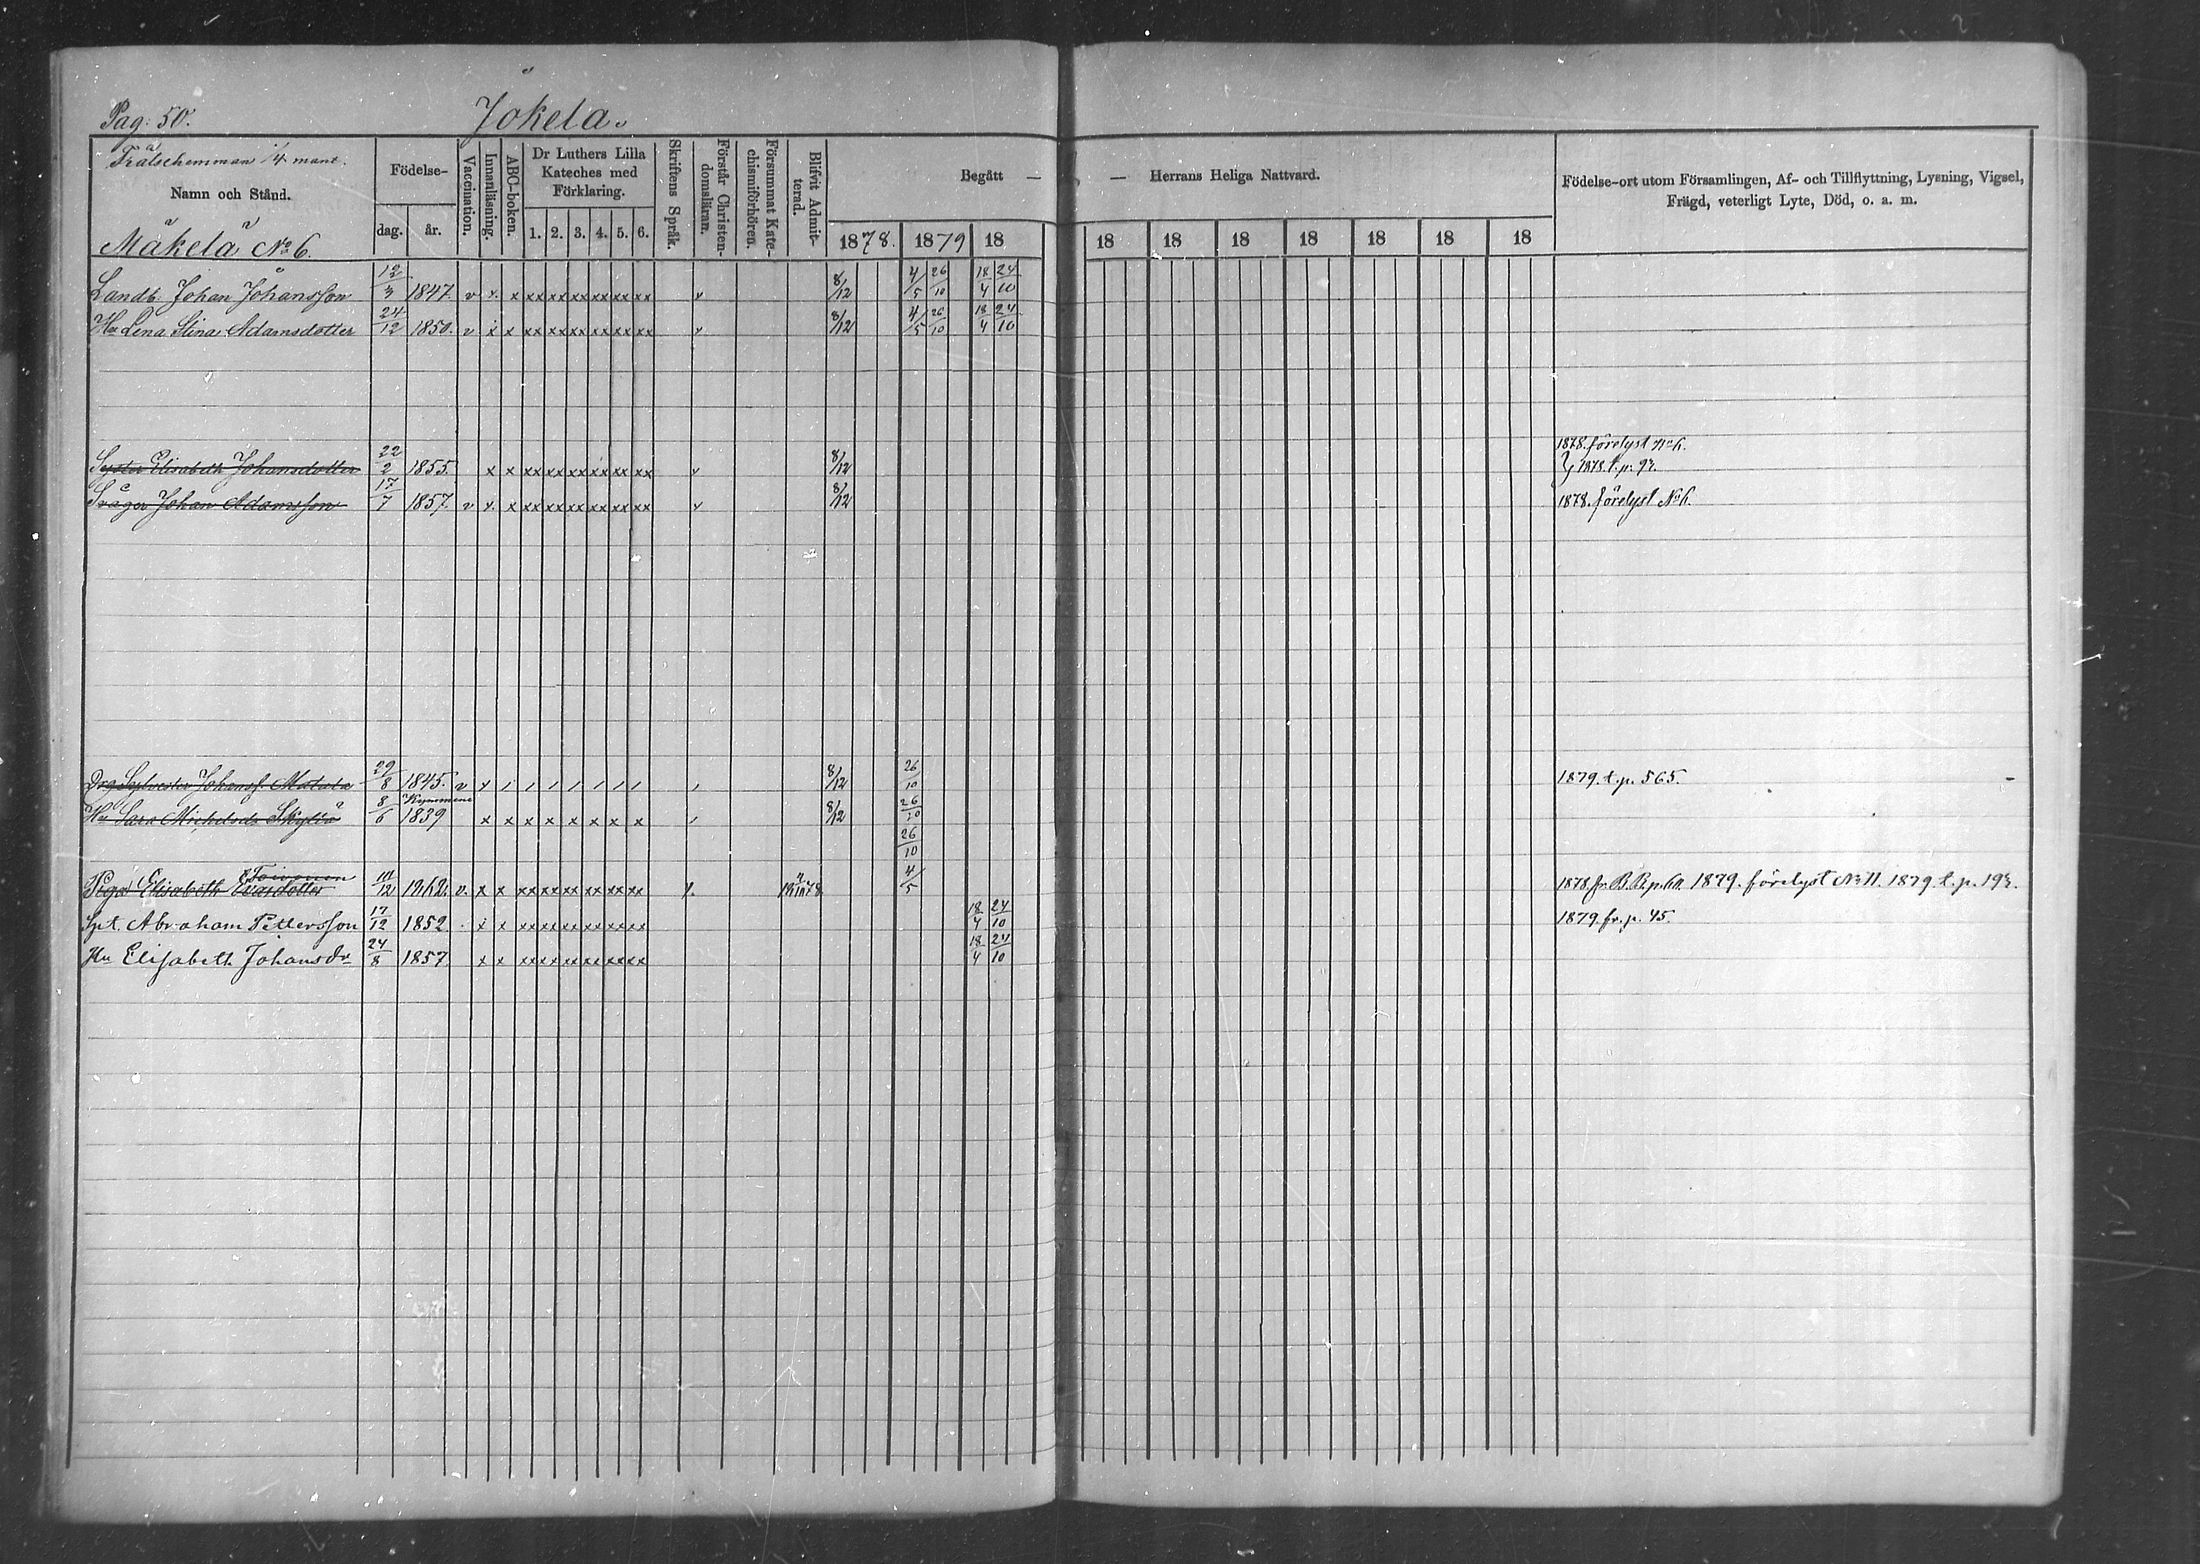 Pag: 50.
Jokela.
Frälsehemman 1/4 mant.
Namn och Stånd.
Mäkelä No 6.
Födelse-
dag. år.
Vaccination.
Innanläsning.
ABC-boken.
Dr Luthers Lilla
Kateches med
Förklaring.
1. 2. 3. 4. 5. 6.
Skriftens Språk.
Förstår Christen-
domsläran.
Försummat Kate-
chismiförhören.
Blifvit Admit-
terad.
Begått — — Herrans Heliga Nattvard.
1878. 1879 18 18 18 18 18 18 18 18
Födelse-ort utom Församlingen, Af- och Tillflyttning, Lysning, Vigsel,
Frägd, veterligt Lyte, Död, o. a. m.
Landb. Johan Johansson 12/3 1847. v x x xx xx xx xx xx xx x 8/12 4/5 26/10 18/4 24/10
Hu Lena Stina Adamsdotter 24/12 1850. v x x xx xx xx xx xx xx x 8/12 4/5 26/10 18/4 24/10
1878. förelyst No 6.
Syster Elisabeth Johansdotter 22/2 1855. x x xx xx xx xx xx xx x 8/12 1878. t. p. 93.
Svåger Johan Adamsson 17/7 1857. v x x xx xx xx xx xx xx x 8/12 1878. förelyst No 6.
Sylvester Johanss. 29/8 1845. v x / / / / / / / / 8/12 26/10 1879. t. p. 565.
Kymmene
Hu Sara Michelsdr Skyttä 8/6 1839 x x x x x x x x / 8/12 26/10
26/10
Toivonen
Piga Elisabeth 12 1862. v. x x xx xx xx xx xx xx x. 4/5 1878. fr. B. B. p. 1879. förelyst No 11. 1879 t. p. 193.
Spt. Abraham Pettersson 17/12 1852. x x xx xx xx xx xx xx 18/4 24/10 1879. fr. p. 45.
Hu Elisabeth Johansdr 24/8 1857. x x xx xx xx xx xx xx 18/4 24/10